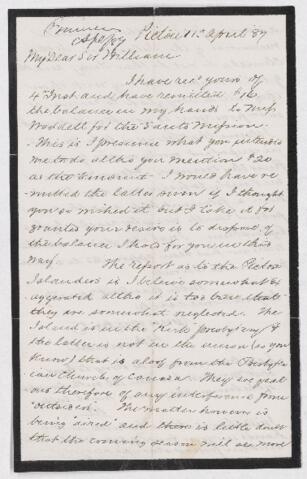 Pictou 11 April 87
My Dear Sir William
I have recd yours of
4 Inst. and have remitted $16
the balance in my hands to Miss
Waddell for the Santo Mission
This is I presume what you intended
me to do altho you mention $20
as the amount. I would have re
mitted the latter sum if I thought
you wished it but I take it for
granted your desire is to dispose of
the balance I hold for you in this
way. The report as to the Pictou
Islanders is I believe somewhat ex
aggerated altho it is too true that
they are somewhat neglected. The
Island is in the Kirk presbytery &
the latter is not in the union (as you
know) that is aloof from the Presbyte
rian Church of Canada. They are jeal
ous therefore of any interference from
"outsiders". The matter however is
being aired and there is little doubt
that the coming season will see more